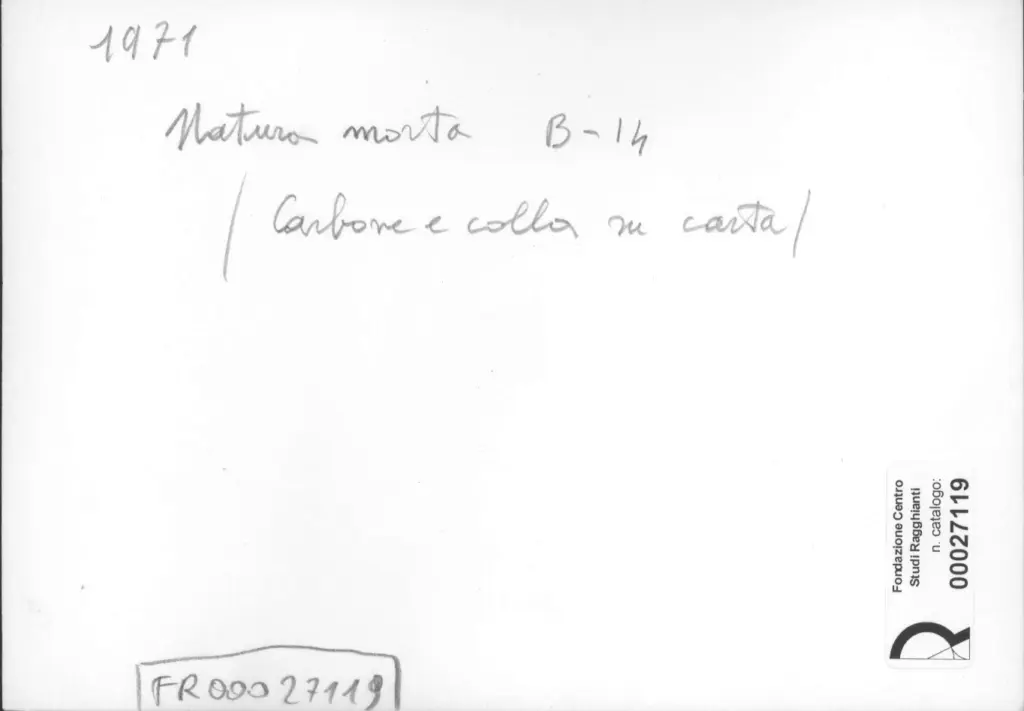 1971
Natura morta B-14
/ Carbone e colla su carta /
Fondazione Centro
Studi Ragghianti
n. catalogo:
00027119
FR00027119